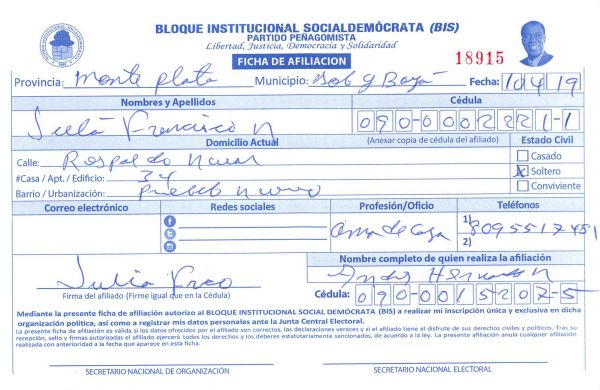 BLOQUE INSTITUCIONAL SOCIALDEMÓCRATA (BIS)
PARTIDO PEÑAGOMISTA
Libertad, Justicia, Democracia y Solidaridad
FICHA DE AFILIACION
18915
Provincia: Monte Plata Municipio: Fecha: 10/4/19
Nombres y Apellidos Cédula
Julia Francisco N 090-0002221-1
Domicilio Actual (Anexar copia de cédula del afiliado) Estado Civil
Calle: Respaldo Casado
#Casa / Apt. / Edificio: 34 X Soltero
Barrio / Urbanización: Pueblo Nuevo Conviviente
Correo electrónico Redes sociales Profesión/Oficio Teléfonos
Ama de Casa 1) 8095517481
2)
Nombre completo de quien realiza la afiliación
Julia Fco
Firma del afiliado (Firme igual que en la Cédula) Cédula: 090-0015207-5
Mediante la presente ficha de afiliación autorizo al BLOQUE INSTITUCIONAL SOCIAL DEMÓCRATA (BIS) a realizar mi inscripción única y exclusiva en dicha
organización política, así como a registrar mis datos personales ante la Junta Central Electoral.
La presente ficha de afiliación es válida si los datos ofrecidos por el afiliado son correctos, las declaraciones veraces y si el afiliado tiene el disfrute de sus derechos civiles y políticos. Tras su
recepción, sello y firmas autorizadas el afiliado ejercerá todos los derechos y los deberes estatutariamente sancionados, de acuerdo a la ley. La presente afiliación anula cualquier afiliación
realizada con anterioridad a la fecha que aparece en esta ficha.
SECRETARIO NACIONAL DE ORGANIZACIÓN SECRETARIO NACIONAL ELECTORAL